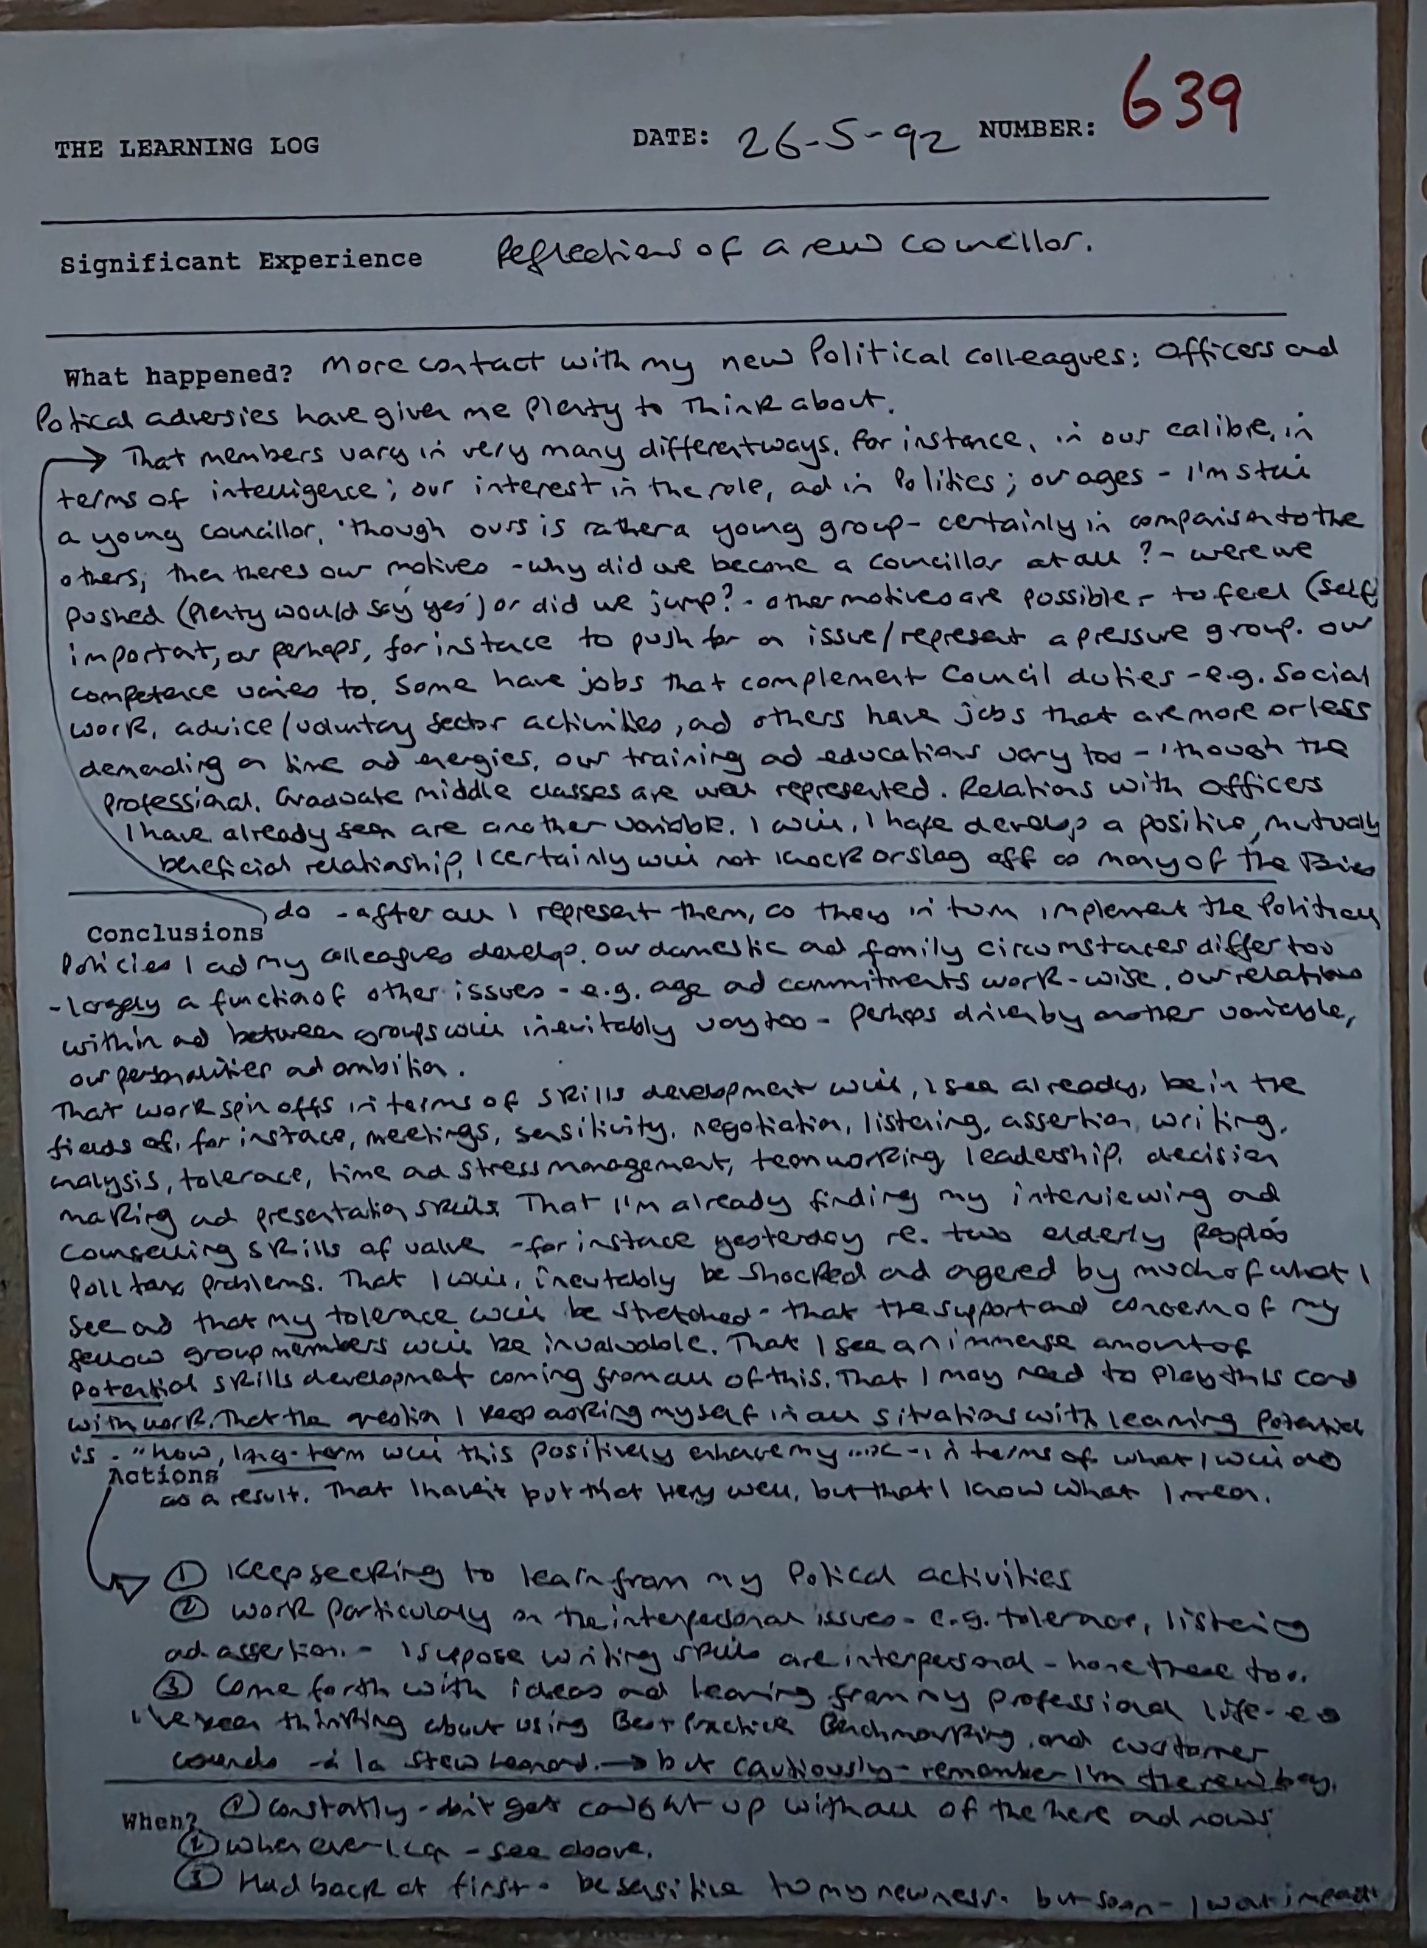 639
THE LEARNING LOG DATE: 26-5-92 NUMBER:
Significant Experience Reflections of a new councillor.
What happened? More contact with my new Political colleagues: Officers and
Potical adversies have given me plenty to think about.
That members vary in very many different ways. For instance, in our calibre, in
terms of intelligence; our interest in the role, ad in Politics; our ages - I'm still
a young councillor, 'though ours is rather a young group - certainly in comparison to the
others; then theres our motives - why did we become a councillor at all? - were we
pushed (plenty would say 'yes') or did we jump? - other motives are possible - to feel (self)
important, or perhaps, for instance to push for an issue/represent a pressure group. Our
competence varies to. Some have jobs that complement Council duties - e.g. Social
work, advice/voluntary sector activities, ad others have jobs that are more or less
demanding on time ad energies. Our training ad educations vary too - 'though the
professional, Graduate middle classes are well represented. Relations with officers
I have already seen are another variable. I will, I hope develop a positive, mutually
beneficial relationship, I certainly will not knock or slag off as many of the
Conclusions do - after all I represent them, as they in turn implement the Political
Policies I ad my colleagues develop. Our domestic ad family circumstances differ too
- largely a function of other issues - e.g. age ad commitments work-wise. Our relations
within ad between groups will inevitably vary too - perhaps driven by another variable,
our personalities ad ambition.
That work spin offs in terms of skills development will, I see already, be in the
fields of, for instance, meetings, sensitivity, negotiation, listening, assertion, writing,
analysis, tolerance, time ad stress management, teamworking, leadership, decision
making ad presentation skills. That I'm already finding my interviewing ad
counselling skills of value - for instance yesterday re. two elderly peoples
Poll tax problems. That I will, inevitably be shocked ad angered by much of what I
see ad that my tolerance will be stretched - that the support and concern of my
fellow group members will be invaluable. That I see an immense amount of
potential skills development coming from all of this. That I may need to play this card
with work. That the question I keep asking myself in all situations with learning potential
is - "how, long-term will this positively enhance my ... - in terms of what I will do
Actions as a result. That I haven't put that very well, but that I know what I mean.
① Keep seeking to learn from my Potical activities
② Work particularly on the interpersonal issues - e.g. tolerance, listening
ad assertion. - I suppose writing skills are interpersonal - hone these too.
③ Come forth with ideas ad learning from my professional life - e.g
I've been thinking about using Best Practice Benchmarking, and customer
à la Stew Leonard. → but cautiously - remember I'm the new boy.
When? ① Constantly - don't get caught up with all of the here ad nows
② Whenever I can - see above.
③ Hold back at first - be sensitive to my newness. but soon - I want impact